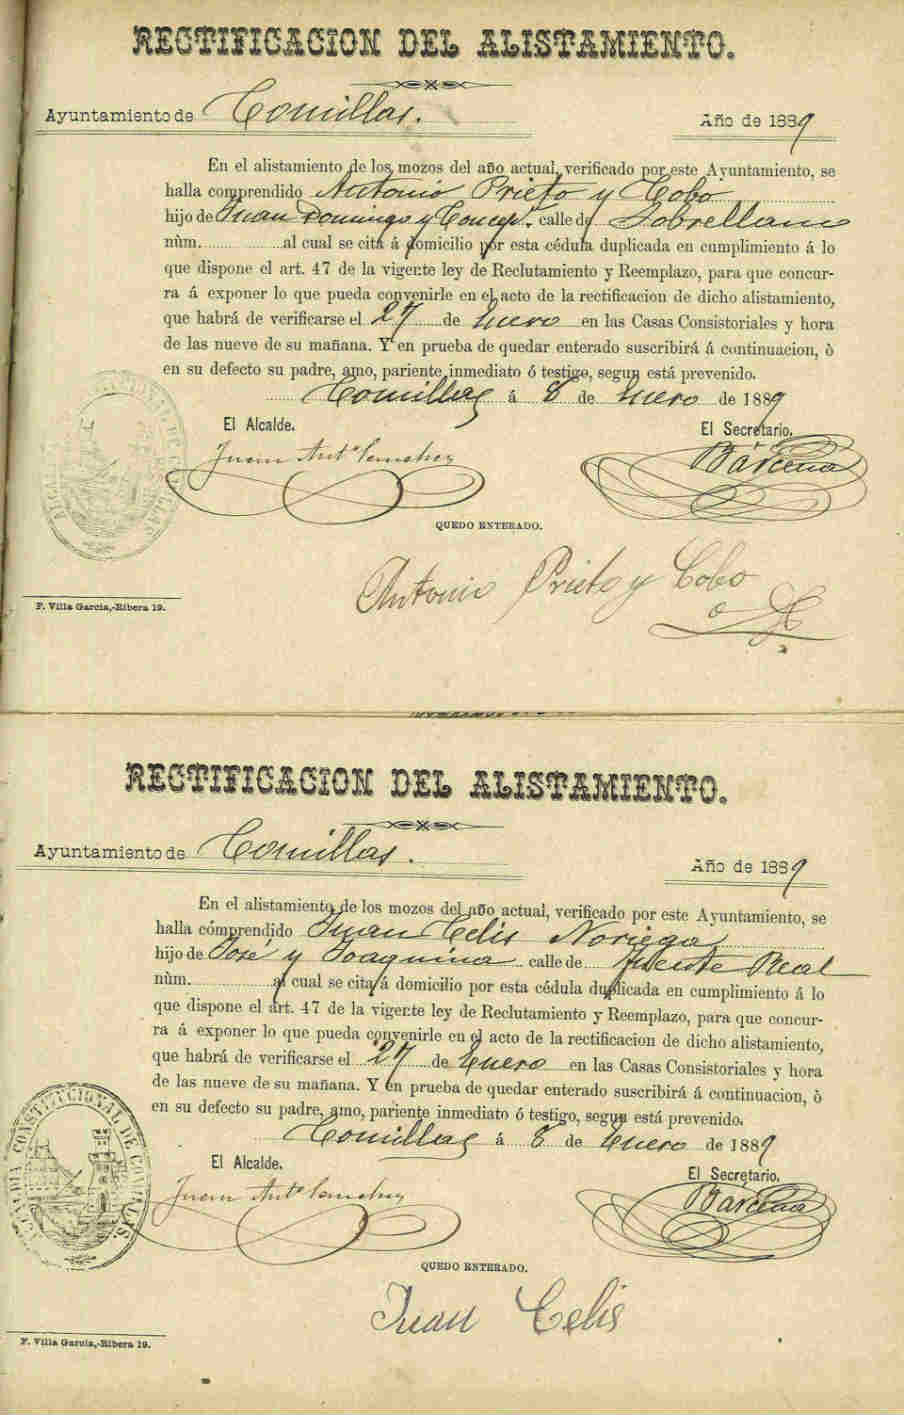 RECTIFICACION DEL ALISTAMIENTO.
Ayuntamiento de Comillas. Año de 1889
En el alistamiento de los mozos del año actual, verificado por este Ayuntamiento, se
halla comprendido Antonio Prieto y Cobo
hijo de Juan Domingo y Concepn. calle de Sobrellano
núm. al cual se cita á domicilio por esta cédula duplicada en cumplimiento á lo
que dispone el art. 47 de la vigente ley de Reclutamiento y Reemplazo, para que concur-
ra á exponer lo que pueda convenirle en el acto de la rectificacion de dicho alistamiento,
que habrá de verificarse el 27 de Enero en las Casas Consistoriales y hora
de las nueve de su mañana. Y en prueba de quedar enterado suscribirá á continuacion, ò
en su defecto su padre, amo, pariente inmediato ó testigo, segun está prevenido.
Comillas á 8 de Enero de 1889
El Alcalde. El Secretario.
Juan Anto Sanchez Bárcena
QUEDO ENTERADO.
Antonio Prieto y Cobo
F. Villa García,-Ribera 19.
RECTIFICACION DEL ALISTAMIENTO.
Ayuntamiento de Comillas. Año de 1889
En el alistamiento de los mozos del año actual, verificado por este Ayuntamiento, se
halla comprendido Juan Celis Noriega
hijo de José y Joaquina calle de fuente Real
núm. al cual se cita á domicilio por esta cédula duplicada en cumplimiento á lo
que dispone el art. 47 de la vigente ley de Reclutamiento y Reemplazo, para que concur-
ra á exponer lo que pueda convenirle en el acto de la rectificacion de dicho alistamiento,
que habrá de verificarse el 27 de Enero en las Casas Consistoriales y hora
de las nueve de su mañana. Y en prueba de quedar enterado suscribirá á continuacion, ò
en su defecto su padre, amo, pariente inmediato ó testigo, segun está prevenido.
Comillas á 8 de Enero de 1889
El Alcalde. El Secretario.
Juan Anto Sanchez Bárcena
ALCALDIA CONSTITUCIONAL DE COMILLAS.
QUEDO ENTERADO.
Juan Celis
F. Villa García,-Ribera 19.